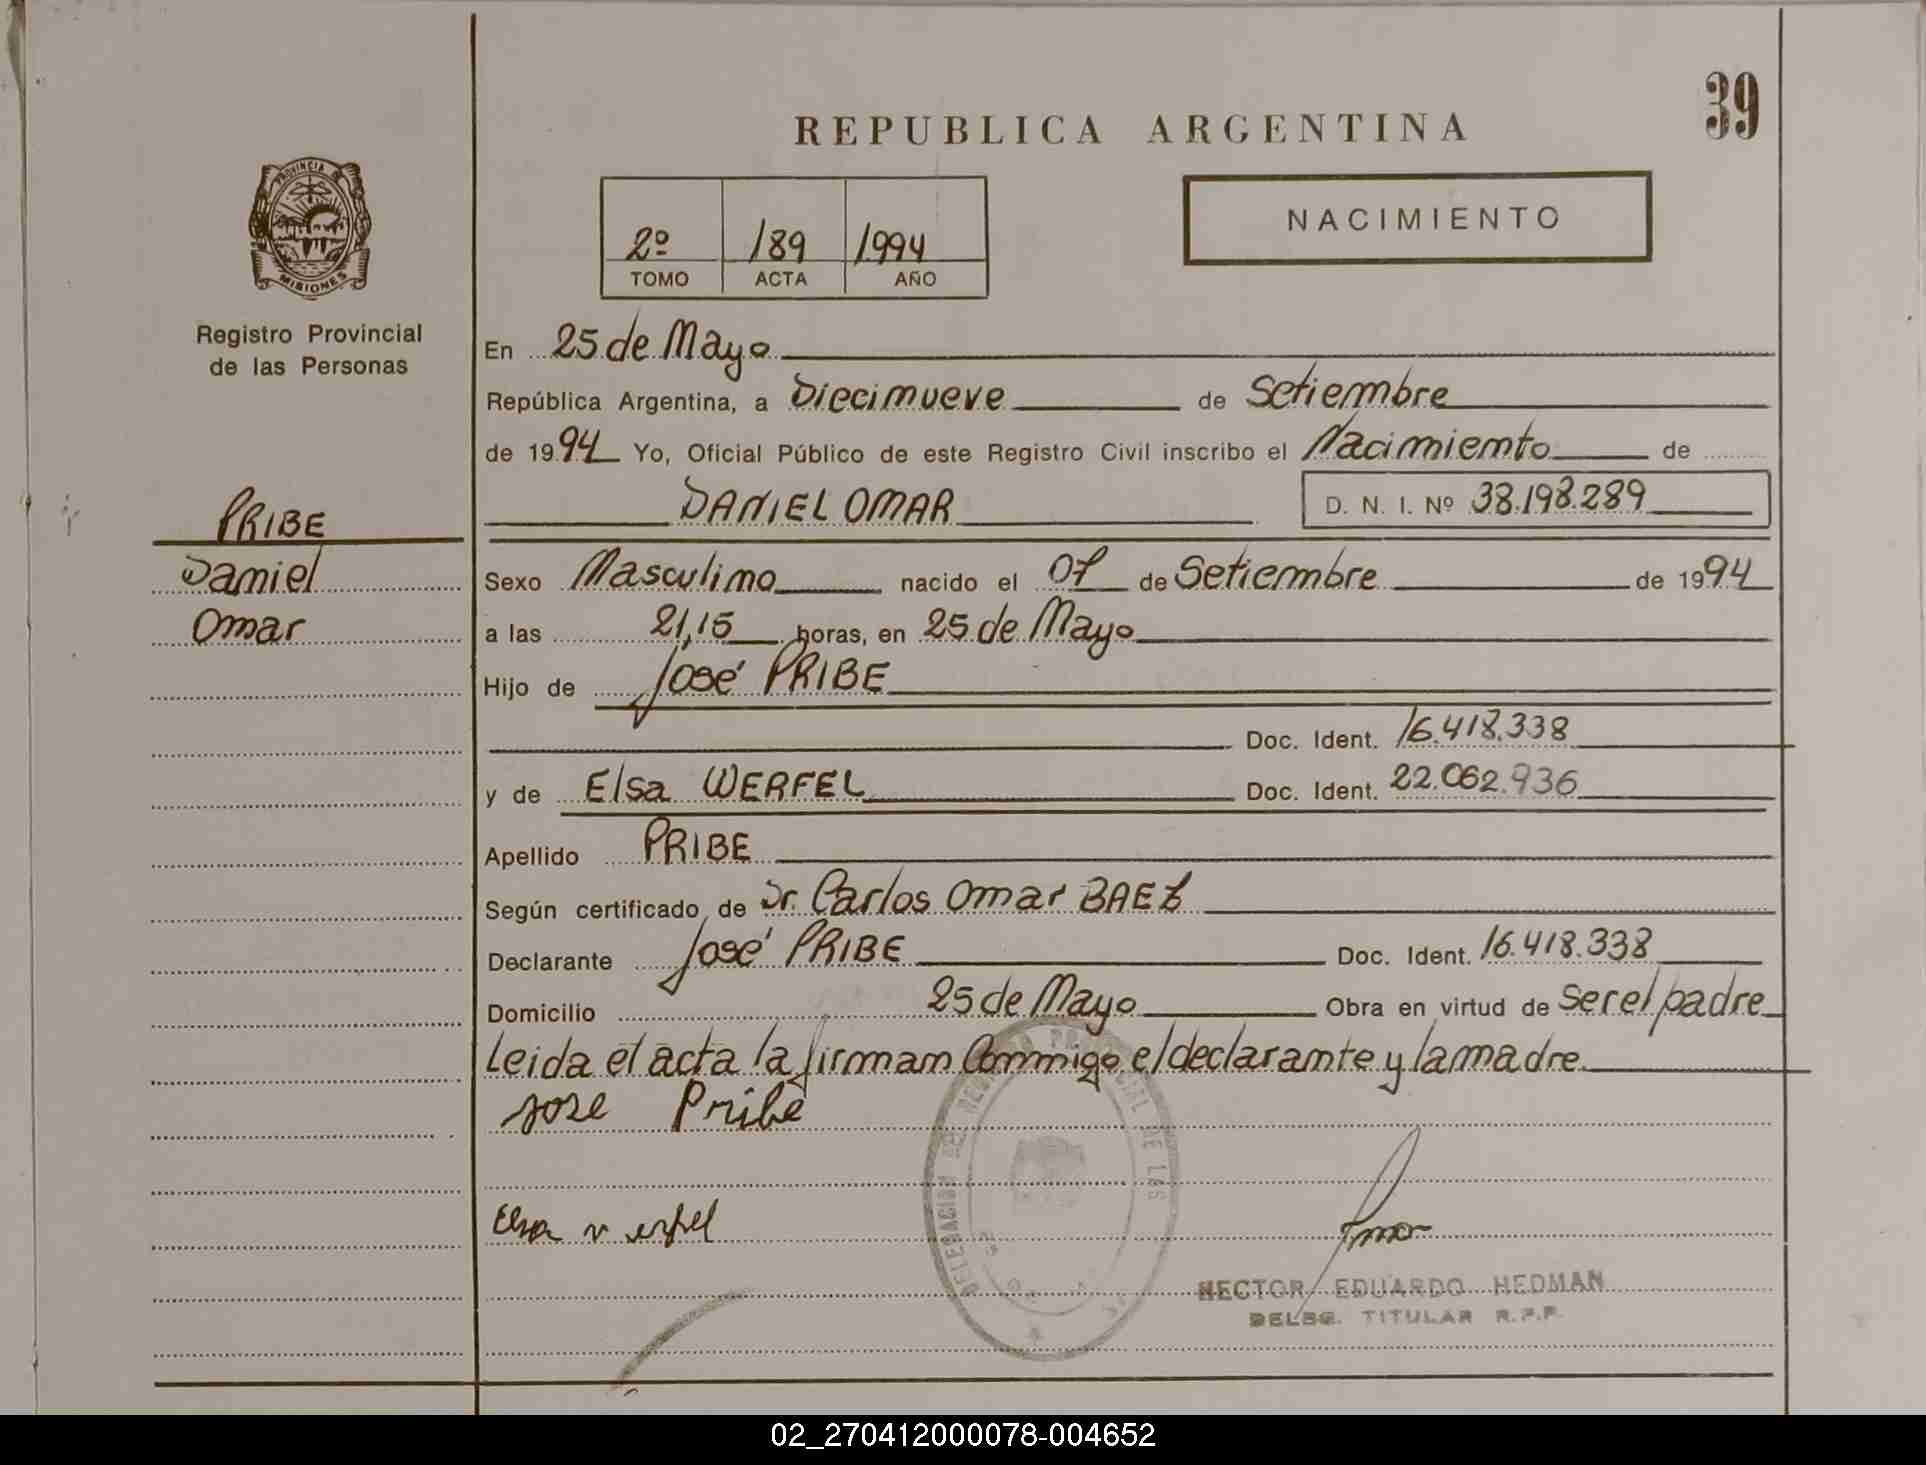 39
REPUBLICA ARGENTINA
PROVINCIA DE
MISIONES
Registro Provincial
de las Personas
2º 189 1994
TOMO ACTA AÑO
NACIMIENTO
En 25 de Mayo
República Argentina, a Diecinueve de Setiembre
de 1994 Yo, Oficial Público de este Registro Civil inscribo el Nacimiento de
DANIEL OMAR D. N. I. Nº 38.198.289
PRIBE
Daniel
Omar
Sexo Masculino nacido el 07 de Setiembre de 1994
a las 21,15 horas, en 25 de Mayo
Hijo de José PRIBE
Doc. Ident. 16.418.338
y de Elsa WERFEL Doc. Ident. 22.062.936
Apellido PRIBE
Según certificado de Dr. Carlos Omar BAEZ
Declarante José PRIBE Doc. Ident. 16.418.338
Domicilio 25 de Mayo Obra en virtud de ser el padre
Leida el acta la firman Conmigo el declarante y la madre
Jose Pribe
Elsa Werfel
DELEGACION DEL REGISTRO PROVINCIAL DE LAS
HECTOR EDUARDO HEDMAN
DELEG. TITULAR R.P.P.
02_270412000078-004652